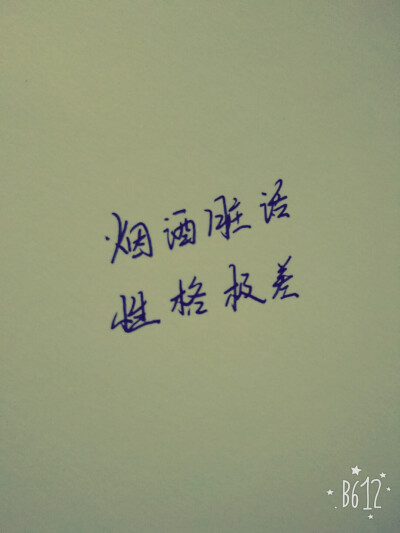 烟酒脏语
性格极差
B612